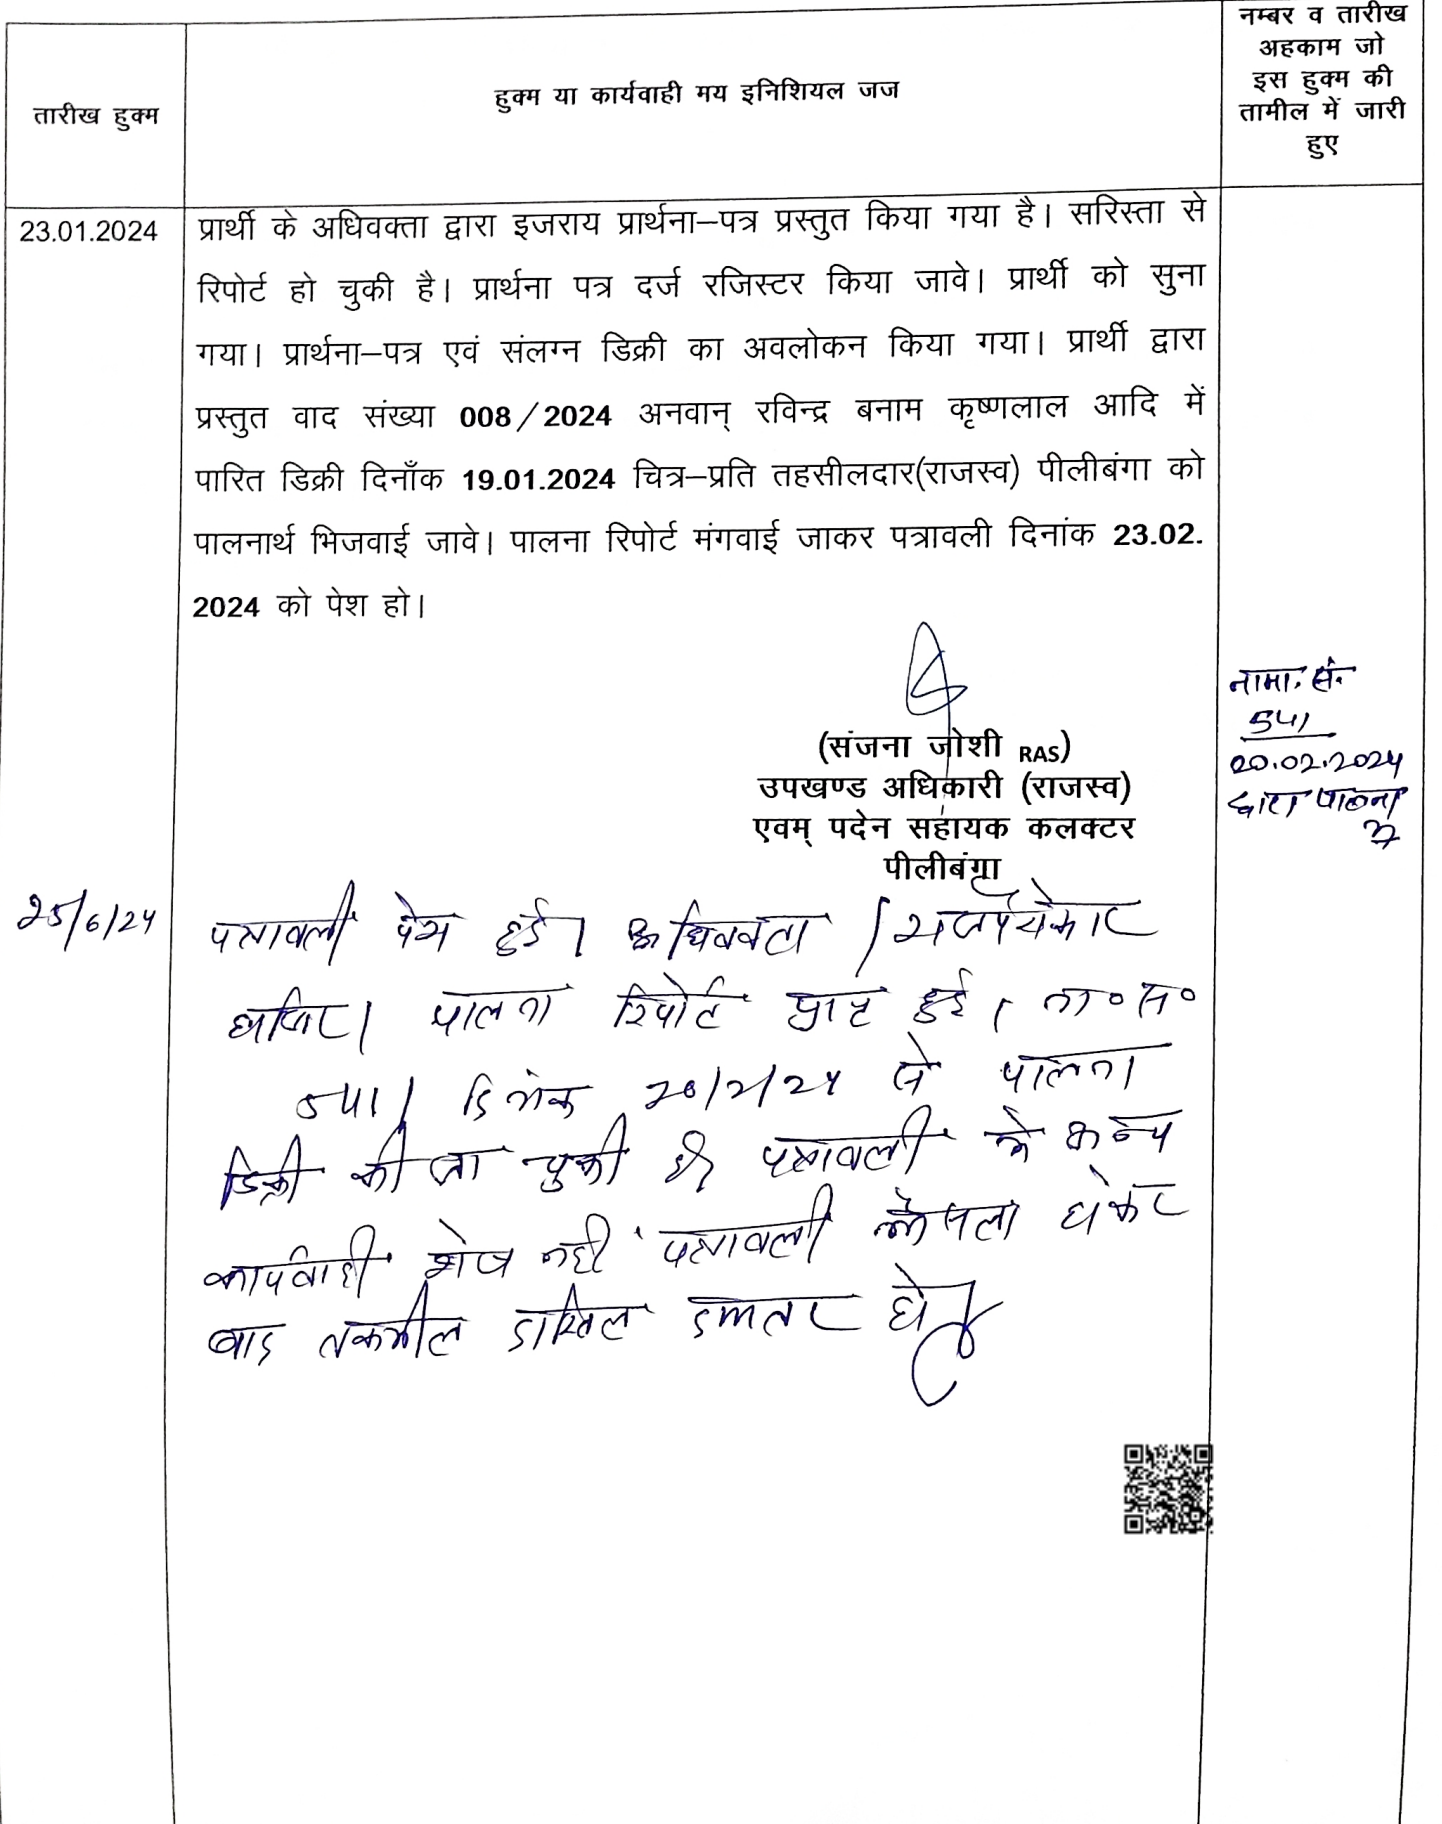 तारीख हुक्म
हुक्म या कार्यवाही मय इनिशियल जज
नम्बर व तारीख
अहकाम जो
इस हुक्म की
तामील में जारी
हुए
23.01.2024
प्रार्थी के अधिवक्ता द्वारा इजराय प्रार्थना–पत्र प्रस्तुत किया गया है। सरिस्ता से
रिपोर्ट हो चुकी है। प्रार्थना पत्र दर्ज रजिस्टर किया जावे। प्रार्थी को सुना
गया। प्रार्थना–पत्र एवं संलग्न डिक्री का अवलोकन किया गया। प्रार्थी द्वारा
प्रस्तुत वाद संख्या 008/2024 अनवान् रविन्द्र बनाम कृष्णलाल आदि में
पारित डिक्री दिनाँक 19.01.2024 चित्र–प्रति तहसीलदार(राजस्व) पीलीबंगा को
पालनार्थ भिजवाई जावे। पालना रिपोर्ट मंगवाई जाकर पत्रावली दिनांक 23.02.
2024 को पेश हो।
(संजना जोशी RAS)
उपखण्ड अधिकारी (राजस्व)
एवम् पदेन सहायक कलक्टर
पीलीबंगा
नामा. सं.
541
20.02.2024
द्वारा पालना
25/6/24
पत्रावली पेश हुई। अधिवक्ता
हाजिर। पालना रिपोर्ट प्राप्त हुई। ना॰ स॰
541 दिनांक 20/2/24 से पालना
डिक्री की जा चुकी है। पत्रावली में अन्य
कार्यवाही शेष नहीं पत्रावली फैसला होकर
बाद तकमील दाखिल दफ्तर हो